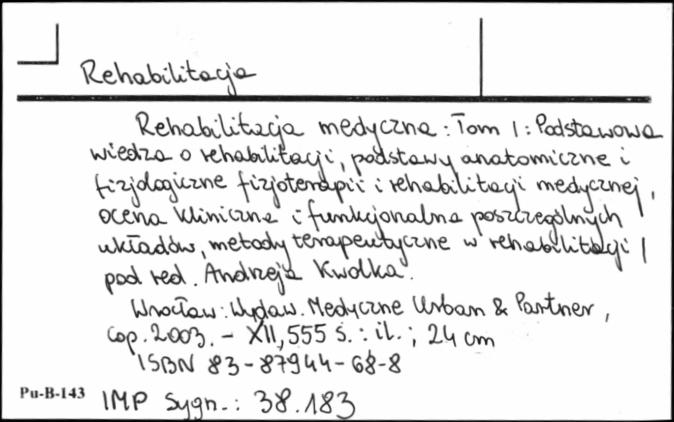 Rehabilitacja
Rehabilitacja medyczna : Tom 1 : Podstawowa
wiedza o rehabilitacji, podstawy anatomiczne i
fizjologiczne fizjoterapii i rehabilitacji medycznej,
ocena kliniczna i funkcjonalna poszczególnych
układów, metody terapeutyczne w rehabilitacji /
pod red. Andrzeja Kwolka.
Wrocław : Wydaw. Medyczne Urban & Partner,
cop. 2003. - XII, 555 s. : il. ; 24 cm
ISBN 83-87944-68-8
Pu-B-143 IMP Sygn.: 38.183